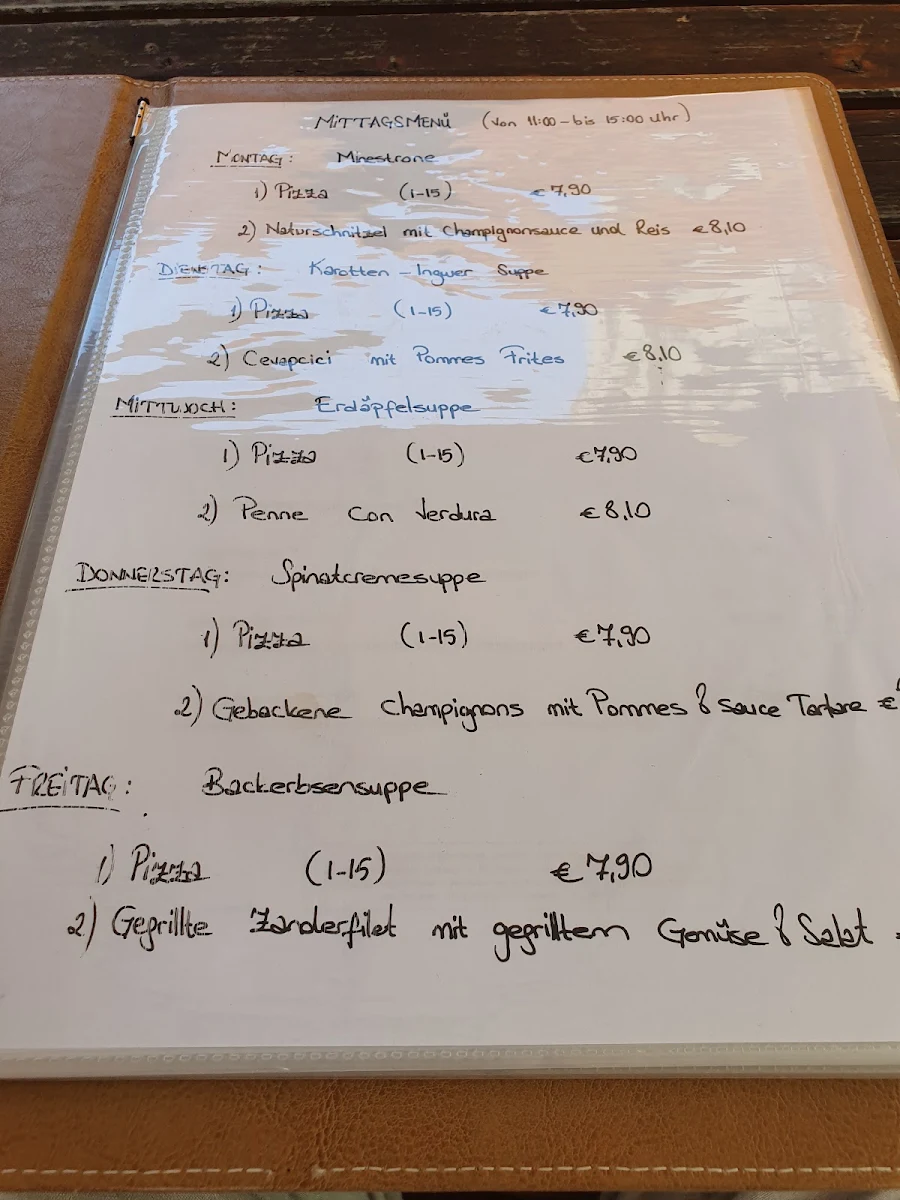 MITTAGSMENÜ (von 11:00 – bis 15:00 Uhr)
MONTAG: Minestrone
1) Pizza (1-15) € 7,90
2) Naturschnitzel mit Champignonsauce und Reis € 8,10
DIENSTAG: Karotten – Inguer Suppe
1) Pizza (1-15) € 7,90
2) Cevapcici mit Pommes Frites € 8,10
MITTWOCH: Erdäpfelsuppe
1) Pizza (1-15) € 7,90
2) Penne con Verdura € 8,10
DONNERSTAG: Spinatcremesuppe
1) Pizza (1-15) € 7,90
2) Gebackene Champignons mit Pommes & Sauce Tartare €
FREITAG: Backerbsensuppe
1) Pizza (1-15) € 7,90
2) Gegrillte Zanderfilet mit gegrilltem Gemüse & Salat